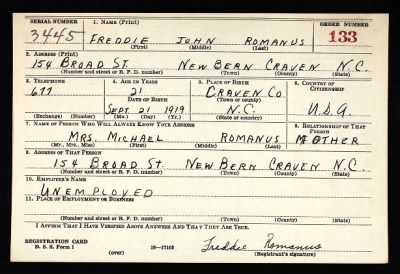 SERIAL NUMBER 1. NAME (Print) ORDER NUMBER
3445 FREDDIE JOHN ROMANUS 133
(First) (Middle) (Last)
2. ADDRESS (Print)
154 BROAD ST. NEW BERN CRAVEN N.C.
(Number and street or R. F. D. number) (Town) (County) (State)
3. TELEPHONE 4. AGE IN YEARS 5. PLACE OF BIRTH 6. COUNTRY OF CITIZENSHIP
677 21 CRAVEN CO
DATE OF BIRTH (Town or county)
SEPT 21 1919 N.C. U.S.A.
(Exchange) (Number) (Mo.) (Day) (Yr.) (State or country)
7. NAME OF PERSON WHO WILL ALWAYS KNOW YOUR ADDRESS 8. RELATIONSHIP OF THAT PERSON
MRS. MICHAEL ROMANUS MOTHER
(Mr., Mrs., Miss) (First) (Middle) (Last)
9. ADDRESS OF THAT PERSON
154 BROAD ST. NEW BERN CRAVEN N.C.
(Number and street or R. F. D. number) (Town) (County) (State)
10. EMPLOYER'S NAME
UNEMPLOYED
11. PLACE OF EMPLOYMENT OR BUSINESS
(Number and street or R. F. D. number) (Town) (County) (State)
I AFFIRM THAT I HAVE VERIFIED ABOVE ANSWERS AND THAT THEY ARE TRUE.
REGISTRATION CARD
D. S. S. Form 1 (over) 16—17105 Freddie Romanus
(Registrant's signature)